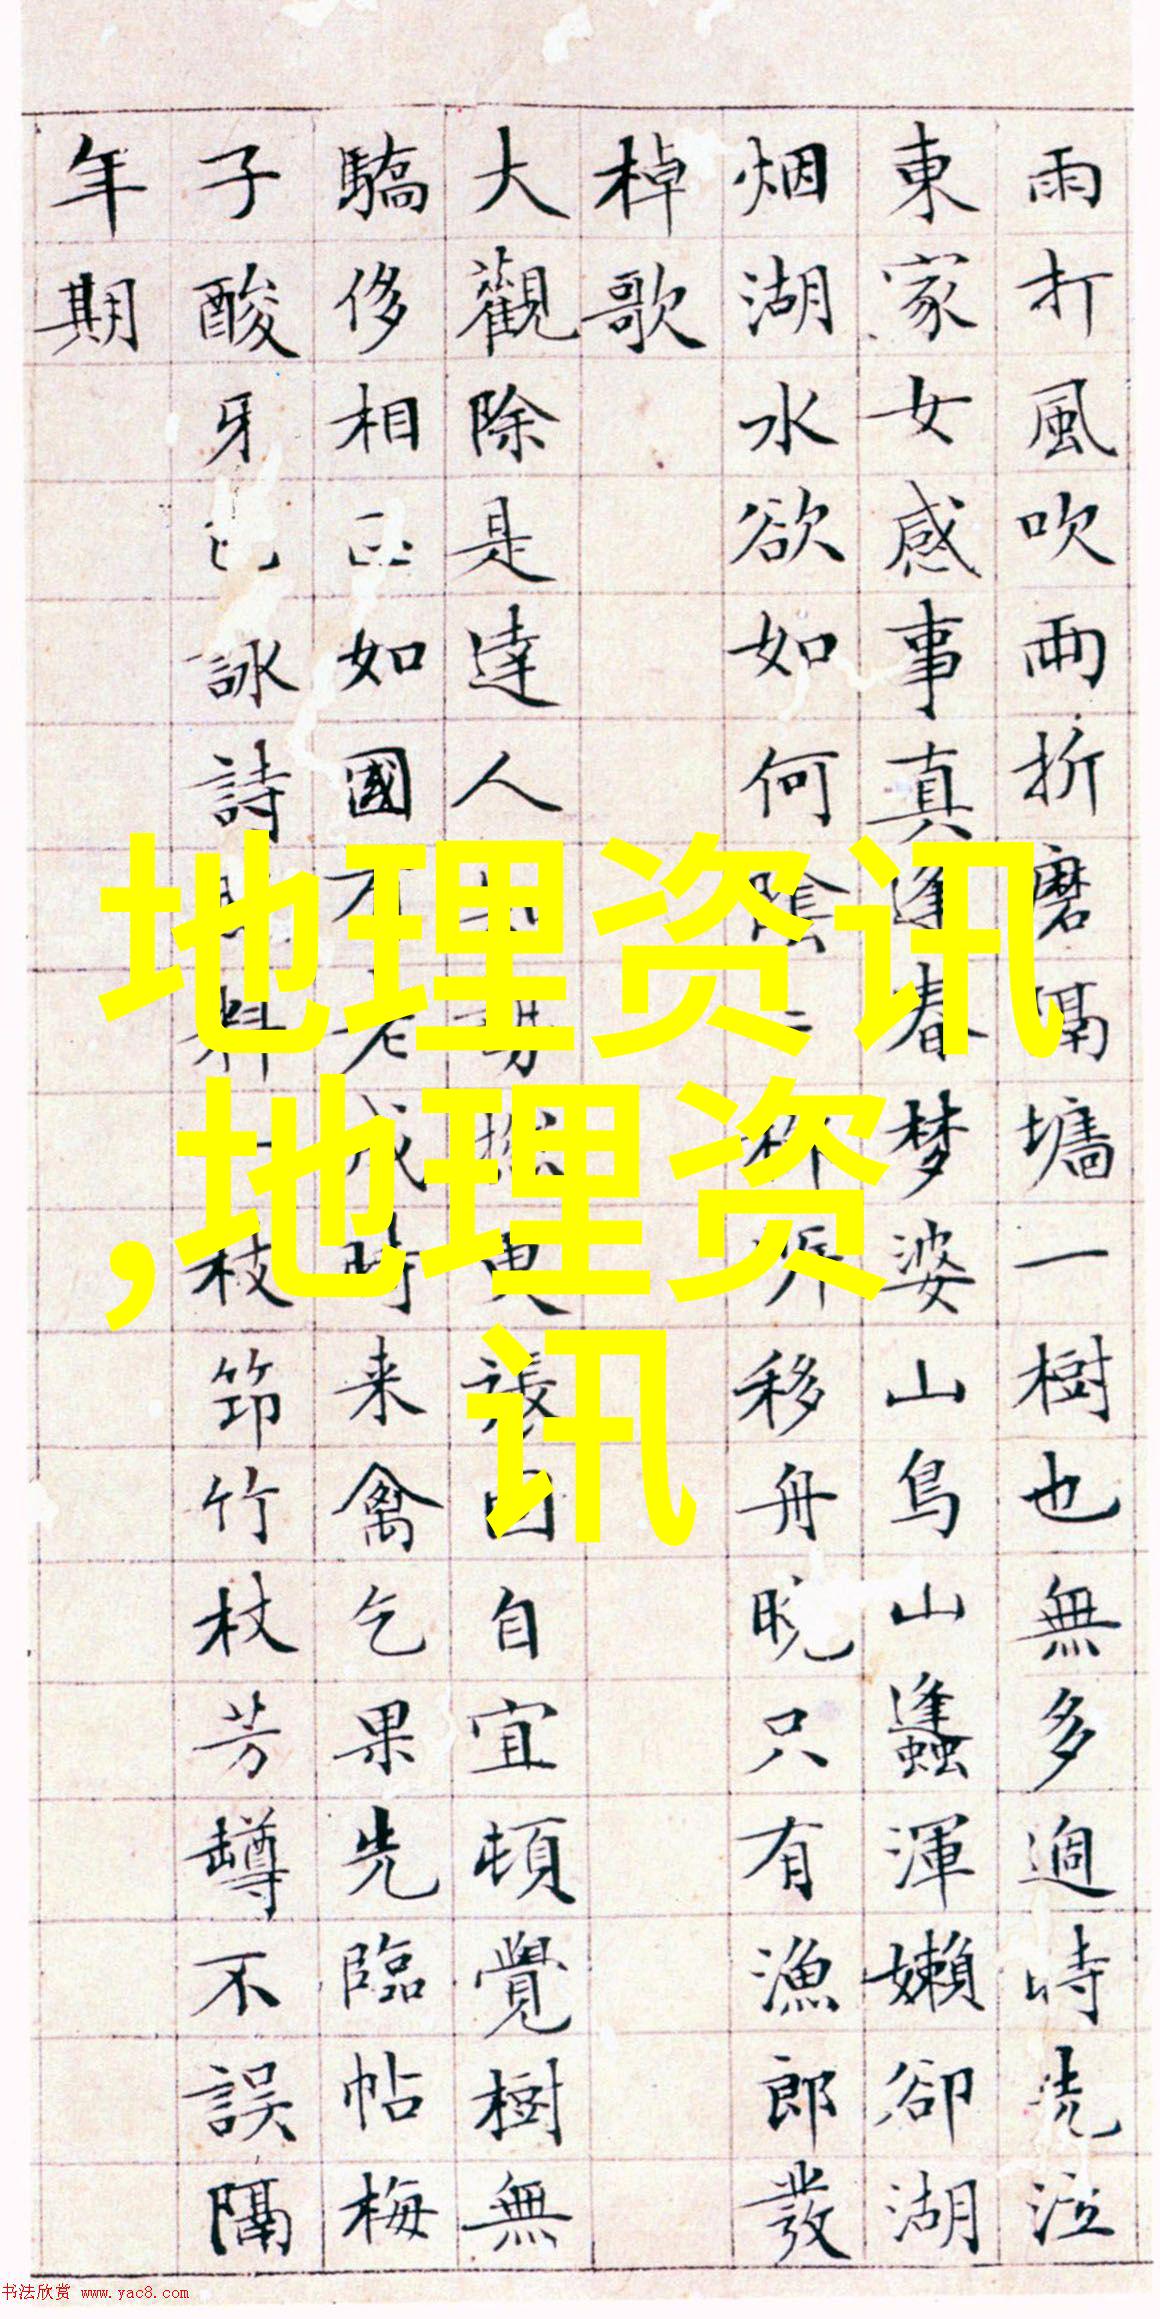 雨打風吹雨折磨隔墻一樹也無多過時洗泣
東家女感事真逢春夢婆山鳥山蠭渾嬾卻湖
烟湖水欲如何陰移舟晚只有漁郎發
棹歌
大觀除是達人自宜頓覺樹無
驕侈相如國不老成時来禽乞果先臨帖梅
子酸牙詠詩料一枝筇竹杖芳罇不誤隔
年期
地理资讯
,地理资
讯
书法欣赏 www.yac8.com